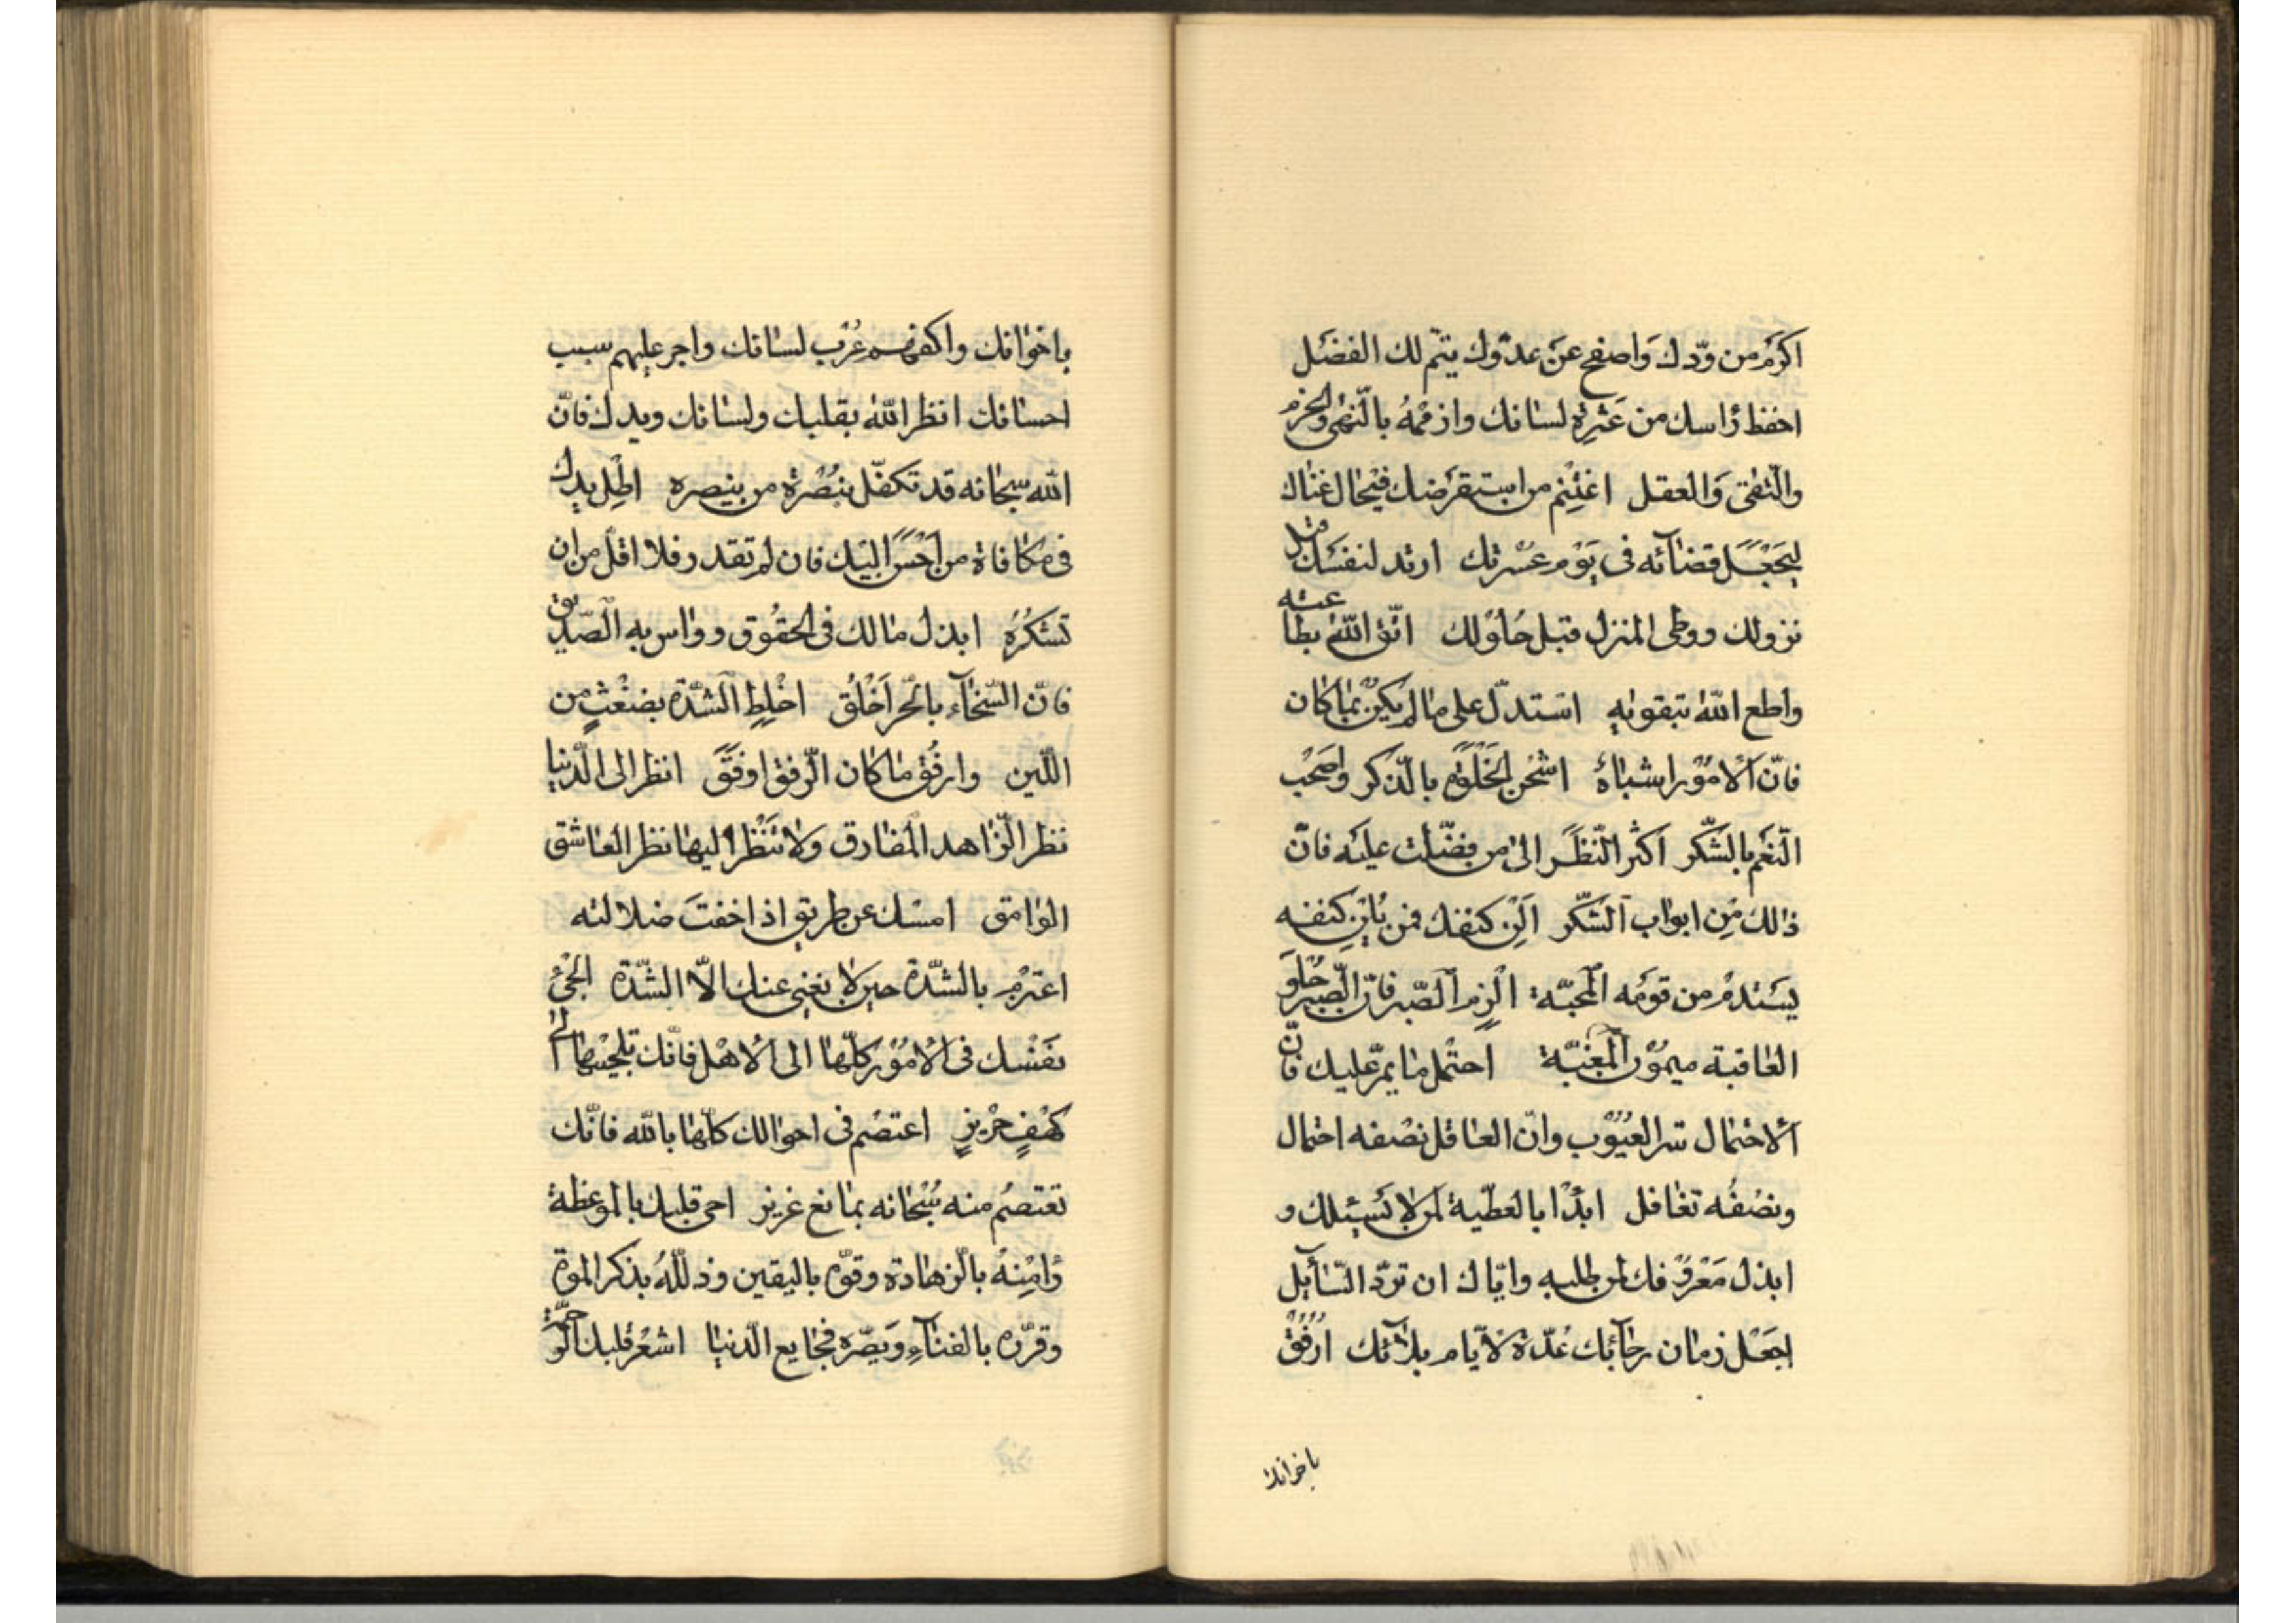 اكرم من ودّك واصفح عن عدوّك يتمّ لك الفضل
احفظ رأسك من عثرة لسانك وازممه بالنهى والحزم
والتّقى والعقل اغتنم من استقرضك في حال غناك
ليجعل قضائه في يوم عسرتك ارتد لنفسك قبل
نزولك ووطى المنزل قبل حلولك اتّق الله بطاعته
واطع الله بتقويه استدلّ على ما لم يكن بما كان
فانّ الامور اشباه اشحن الخلوة بالذّكر واصحب
النّعم بالشّكر اكثر النّظر الى من فضّلت عليه فانّ
ذلك من ابواب الشّكر الن كنفك فمن يلن كنفه
يستدم من قومه المحبّة الزم الصّبر فانّ الصّبر حلو
العاقبة ميمون المغبّة احتمل ما يمرّ عليك فانّ
الاحتمال ستر العيوب وانّ العاقل نصفه احتمال
ونصفه تغافل ابدأ بالعطيّة لمن لا يسئلك و
ابذل معروفك لمن طلبه وايّاك ان تردّ السّايل
اجعل زمان رخآئك عدّة لايّام بلائك ارفق
باخوانك
باخوانك واكفهم غرب لسانك واجر عليهم سيب
احسانك انظر الله بقلبك ولسانك ويدك فانّ
الله سبحانه قد تكفّل بنصرة من ينصره اطل يدك
في مكافاة من احسن اليك فان لم تقدر فلا اقلّ من ان
تشكره ابذل مالك في الحقوق وواس به الصّديق
فانّ السّخآء بالحرّ اخلق اخلط الشّدّة بضغث من
اللّين وارفق ما كان الرّفق اوفق انظر الى الدّنيا
نظر الزّاهد المفارق ولا تنظر اليها نظر العاشق
الوامق امسك عن طريق اذا خفت ضلالته
اعتزم بالشّدّة حين لا يغني عنك الّا الشّدّة الجئ
نفسك في الامور كلّها الى الاهل فانّك تلجئها الى
كهف حريز اعتصم في احوالك كلّها بالله فانّك
تعتصم منه سبحانه بمانع عزيز احى قلبك بالموعظة
وامنه بالزهادة وقوّه باليقين وذلّله بذكر الموت
وقرّره بالفنآء وبصّره فجايع الدّنيا اشعر قلبك الرّحمة